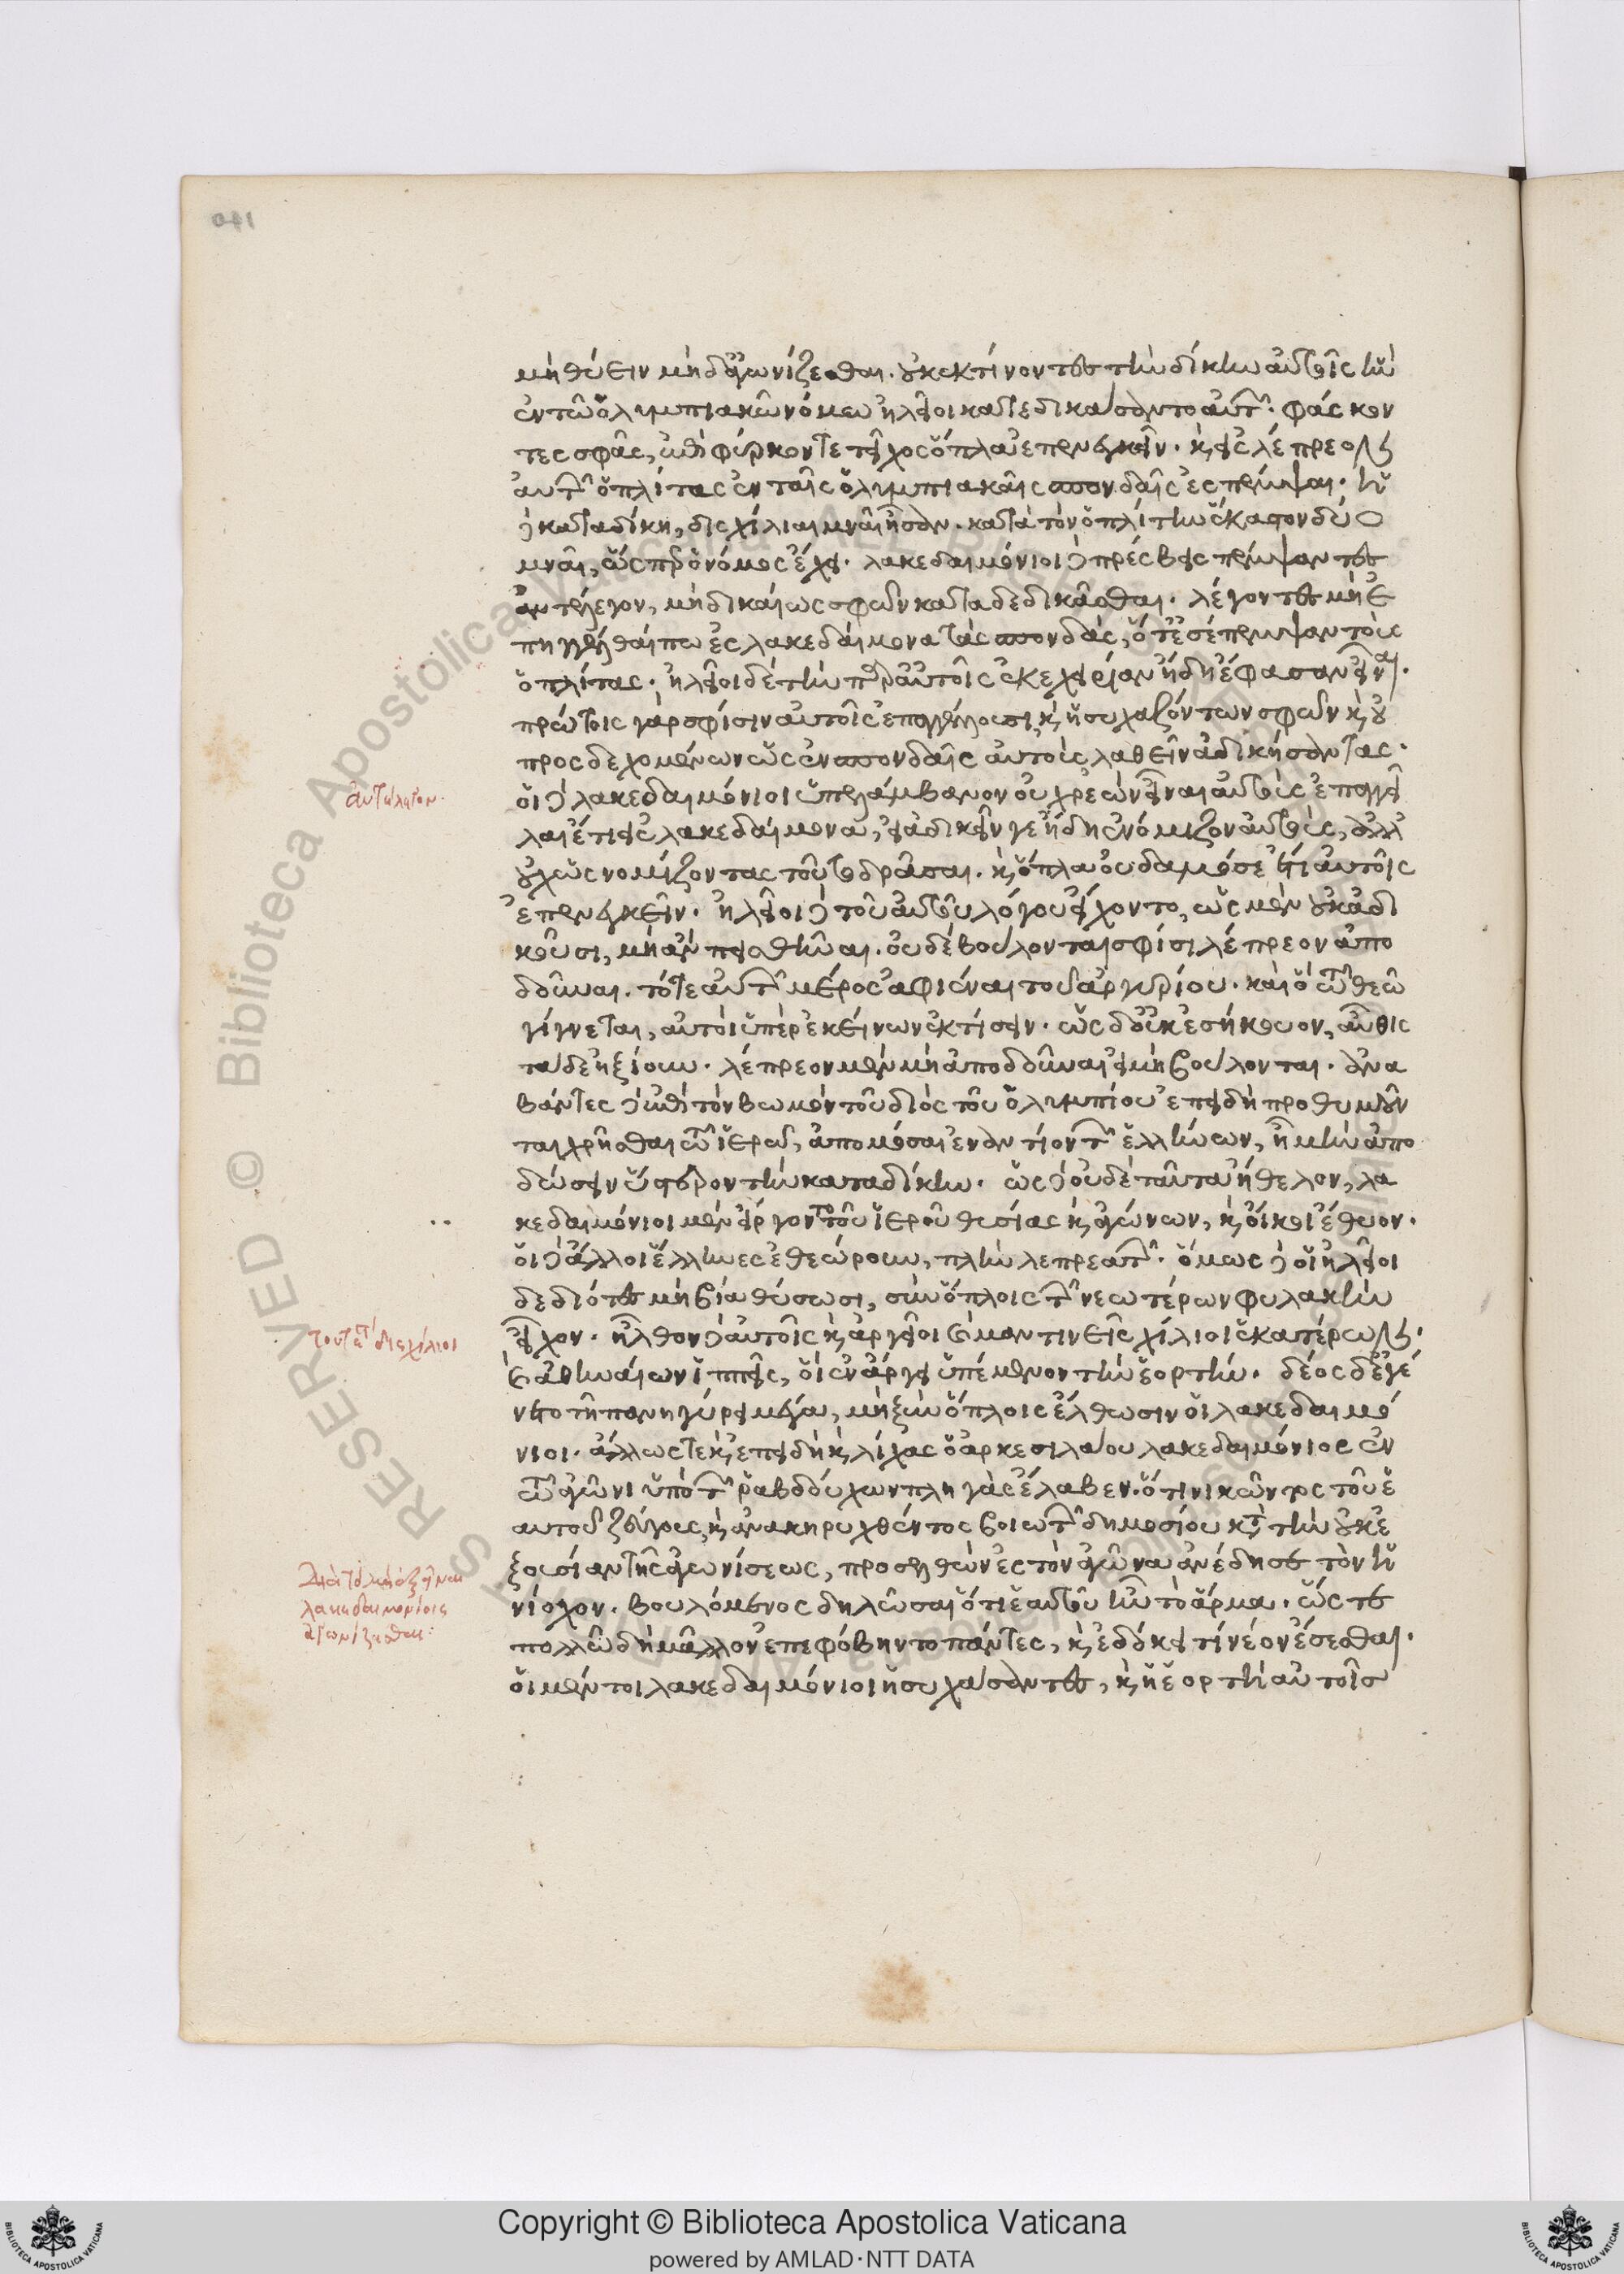 μὴ θύειν μηδ' ἀγωνίζεσθαι. οὐκ ἐκτίνοντες τὴν δίκην αὐτοῖς ἣν
ἐν τῶ ὀλυμπιακῶ νόμω ἠλεῖοι κατεδικάσαντο αὐτῶν. φάσκον
τες σφᾶς, ἐπὶ φύρκον τε τεῖχος ὅπλα ἐπενεγκεῖν. καὶ ἐς λέπρεον
αὐτῶν ὁπλίτας ἐν ταῖς ὀλυμπιακαῖς σπονδαῖς ἐσπέμψαι. ἡ
δὲ καταδίκη, δισχίλιαι μναῖ ἦσαν. κατὰ τὸν ὁπλίτην ἕκαστον δύο
μναῖ, ὥσπερ ὁ νόμος ἔχει. λακεδαιμόνιοι δὲ πρέσβεις πέμψαντες
ἀντέλεγον, μὴ δικαίως σφῶν καταδεδικᾶσθαι. λέγοντες μὴ ἐ
πηγγέλθαί πω ἐς λακεδαίμονα τὰς σπονδάς, ὅτ' ἐσέπεμψαν τοὺς
ὁπλίτας. ἠλεῖοι δὲ τὴν παρ' αὐτοῖς ἐκεχειρίαν ἤδη ἔφασαν εἶναι.
πρώτοις γὰρ σφίσιν αὐτοῖς ἐπαγγέλλουσι, καὶ ἡσυχαζόντων σφῶν καὶ οὐ
προσδεχομένων ὡς ἐν σπονδαῖς αὐτοὺς λαθεῖν ἀδικήσαντας.
οἱ δὲ λακεδαιμόνιοι ὑπελάμβανον οὐ χρεὼν εἶναι αὐτοὺς ἐπαγγεῖ
λαι ἔτι ἐς λακεδαίμονα, εἰ ἀδικεῖν γε ἤδη ἐνόμιζον αὐτούς, ἀλλ'
οὐχ ὡς νομίζοντας τοῦτο δρᾶσαι. καὶ ὅπλα οὐδαμόσε ἔτι αὐτοῖς
ἐπενεγκεῖν. ἠλεῖοι δὲ τοῦ αὐτοῦ λόγου εἴχοντο, ὡς μὲν οὐκ ἀδι
κοῦσι, μὴ ἂν πεισθῆναι. οὐ δὲ βούλονται σφίσι λέπρεον ἀπο
δοῦναι. τό τε αὐτῶν μέρος ἀφιέναι τοῦ ἀργυρίου. καὶ ὃ τῶ θεῶ
γίγνεται, αὐτοὶ ὑπὲρ ἐκείνων ἐκτίσειν. ὡς δ' οὐκ ἐσήκουον, αὖθις
τάδε ἠξίουν. λέπρεον μὲν μὴ ἀποδοῦναι εἰ μὴ βούλονται. ἀνα
βάντες δὲ ἐπὶ τὸν βωμὸν τοῦ διὸς τοῦ ὀλυμπίου ἐπειδὴ προθυμοῦν
ται χρῆσθαι τῶ ἱερῶ, ἀπομόσαι ἐναντίον τῶν ἑλλήνων, ἦ μὴν ἀπο
δώσειν ὕστερον τὴν καταδίκην. ὡς δὲ οὐδὲ ταῦτα ἤθελον, λα
κεδαιμόνιοι μὲν εἴργοντο τοῦ ἱεροῦ θυσίας καὶ ἀγώνων, καὶ οἴκοι ἔθυον.
οἱ δὲ ἄλλοι ἕλληνες ἐθεώρουν, πλὴν λεπρεατῶν. ὅμως δὲ οἱ ἠλεῖοι
δεδιότες μὴ βία θύσωσι, σὺν ὅπλοις τῶν νεωτέρων φυλακὴν
εἶχον. ἦλθον δὲ αὐτοῖς καὶ ἀργεῖοι καὶ μαντινεῖς χίλιοι ἑκατέρων.
καὶ ἀθηναίων ἱππεῖς, οἳ ἐν ἄργει ὑπέμενον τὴν ἑορτήν. δέος δ' ἐγέ
νετο τῆ πανηγύρει μέγα, μὴ ξὺν ὅπλοις ἔλθωσιν οἱ λακεδαιμό
νιοι. ἄλλως τε καὶ ἐπειδὴ καὶ λίχας ὁ ἀρκεσιλάου λακεδαιμόνιος ἐν
τῶ ἀγῶνι ὑπὸ τῶν ῥαβδούχων πληγὰς ἔλαβεν. ὅτι νικῶντος τοῦ ἑ
αυτοῦ ζεύγους, καὶ ἀνακηρυχθέντος βοιωτῶν δημοσίου κατὰ τὴν οὐκ ἐ
ξουσίαν τῆς ἀγωνίσεως, προσελθὼν ἐς τὸν ἀγῶνα ἀνέδησε τὸν ἡ
νίοχον. βουλόμενος δηλῶσαι ὅτι ἑαυτοῦ ἦν τὸ ἅρμα. ὥστε
πολλῶ δὴ μᾶλλον ἐπεφόβηντο πάντες, καὶ ἐδόκει τι νέον ἔσεσθαι.
οἱ μέντοι λακεδαιμόνιοι ἡσυχάσαντες, καὶ ἡ ἑορτὴ αὐτοῖς
τουτέστι δισχίλιοι
διὰ τὸ μὴ ἐξεῖναι
λακεδαιμονίοις
ἀγωνίζεσθαι:
© Biblioteca Apostolica Vaticana
Copyright © Biblioteca Apostolica Vaticana
powered by AMLAD·NTT DATA